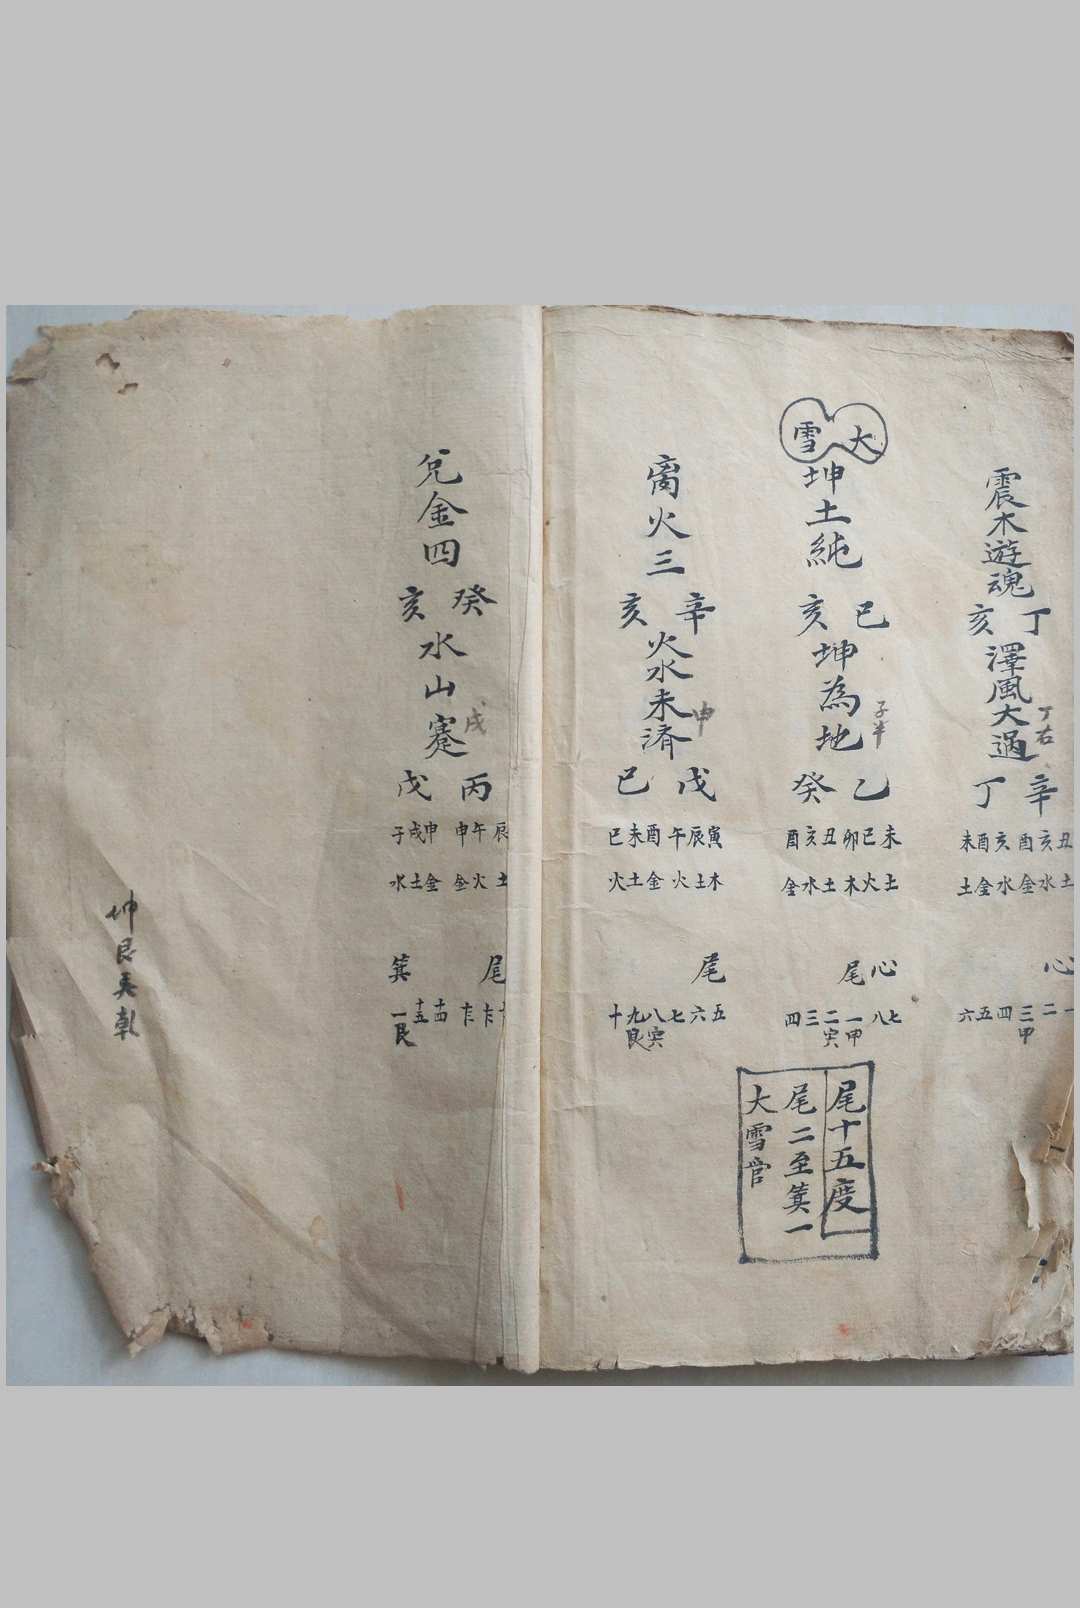 震木遊魂
丁亥
澤風大過
丁右
辛丁
丑亥酉亥酉未
土水金水金土
心
一二三四五六
甲
大雪
坤土純
己亥
坤為地
子半
乙癸
未巳卯丑亥酉
土火木土水金
心尾
七八一二三四
甲寅
尾十五度
尾二至箕一
大雪管
离火三
辛亥
火水未済
申
戊己
寅辰午酉未巳
木土火金土火
尾
五六七八九十
寅艮
兌金四
癸亥
水山蹇
戌
丙戊
辰午申申戌子
土火金金土水
尾箕
十四十五一
艮
坤艮巽乾